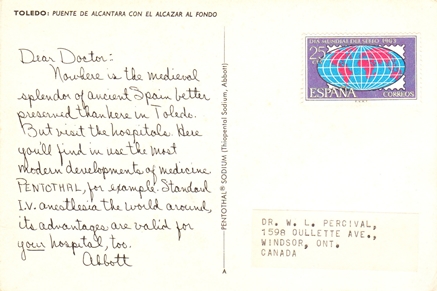 TOLEDO: PUENTE DE ALCANTARA CON EL ALCAZAR AL FONDO
Dear Doctor:
Nowhere is the medieval
splendor of ancient Spain better
preserved than here in Toledo.
But visit the hospitals. Here
you'll find in use the most
modern developments of medicine
PENTOTHAL, for example. Standard
I.V. anesthesia the world around,
its advantages are valid for
your hospital, too.
Abbott
PENTOTHAL® SODIUM (Thiopental Sodium, Abbott)
DIA MUNDIAL DEL SELLO 1963
25
CTS
ESPAÑA
CORREOS
DR. W. L. PERCIVAL,
1598 OULLETTE AVE.,
WINDSOR, ONT.
CANADA